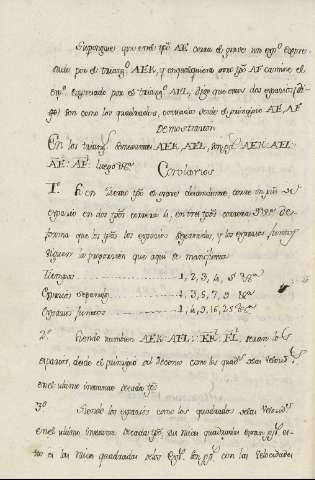 Supongase que en el tpo AE corra el grave un espo expre-
sado por el triango AEK, y en qualquiera otro tpo AF camine el
espo expresado por el triango AFL, digo que estos dos espacios
son como los quadrados, contados desde el principio AE, AF
Demostracion
En los triangs semexantes AEK, AFL, son AEK. AFL:
AE. AF. luego &a
Corolarios
1o. Si en tiempo el grave descendiente, corre un
espacio en dos tpos correrá 4, en tres tpos correrá 9 &a de
forma que los tpos los espacios separados, y los espacios juntos
siguen la progresion que aqui se manifiesta
Tiempos 1, 2, 3, 4, 5 &a
Espacios separados 1, 3, 5, 7, 9 &a
Espacios juntos 1, 4, 9, 16, 25 &a
2o. Siendo tambien AEK. AFL: EK. FL, seran los
espacios, desde el principio del decenso como los quads de las velocids
en el ultimo instante de cada tpo
3o. Siendo los espacios como los quadrados de las velocids
en el ultimo instante de cada tpo, sus raices quadradas
las raices quadradas de los son con las velocidades